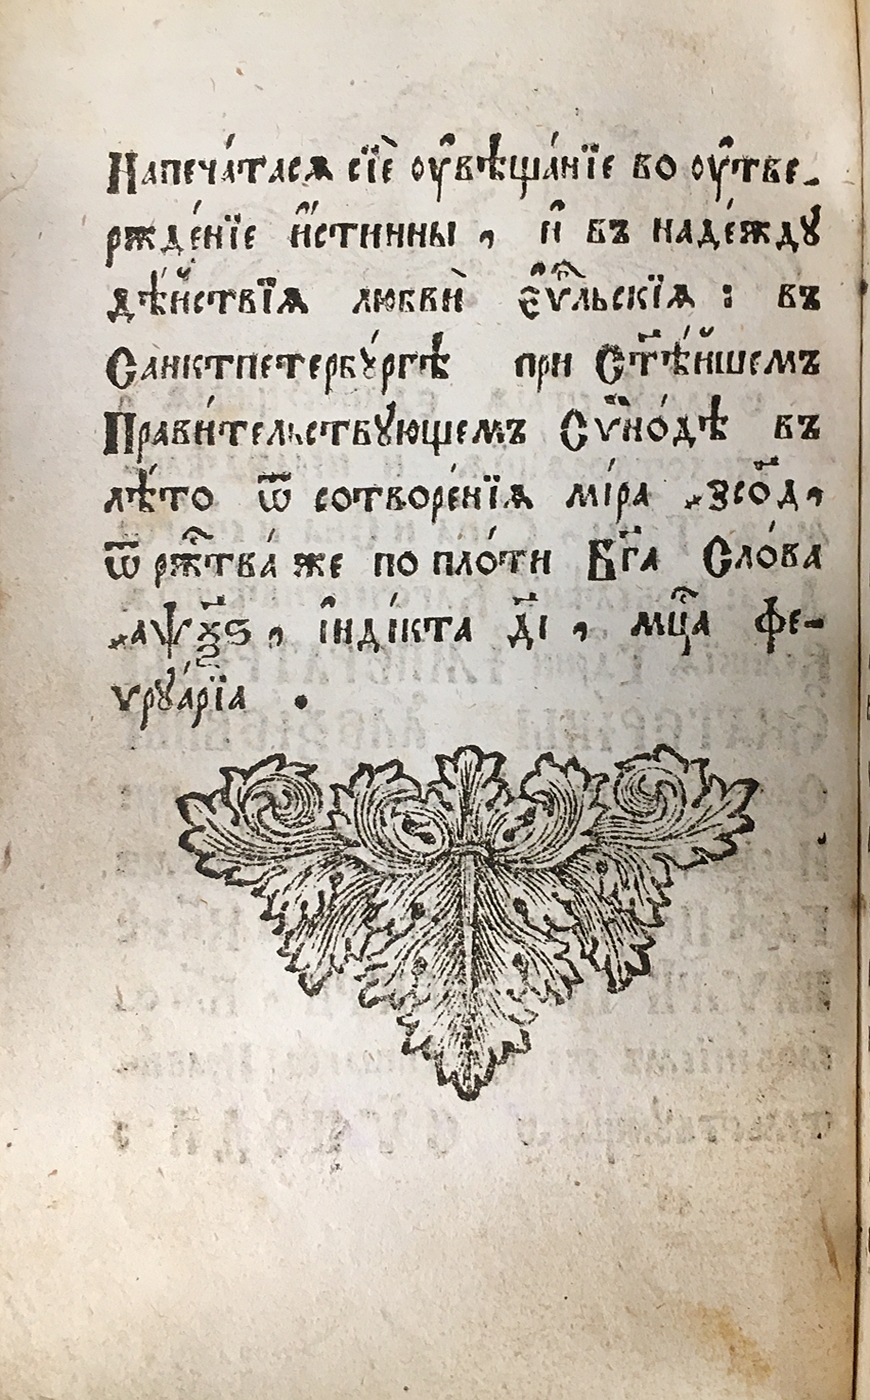 Напеча́тася сїѐ ᲂу҆вѣща́нїе во ᲂу҆тве-
ржде́нїе и҆́стинны , и҆ въ наде́ждꙋ
дѣ́йствїѧ любвѝ є҆ѵⷢ҇льскїѧ : въ
Санктпетербꙋ́ргѣ при Ст҃ѣ́йшемъ
Прави́тельствꙋющемъ Сѵ҆но́дѣ въ
лѣ́то ѿ сотворе́нїѧ мі́ра ҂зсо҃д ,
ѿ рж҇тва́ же по пло́ти Бг҃а Сло́ва
҂аѱ҃ѯѕ , і҆нді́кта д҃і , мц҇а фе-
ѵрꙋа́рїа .